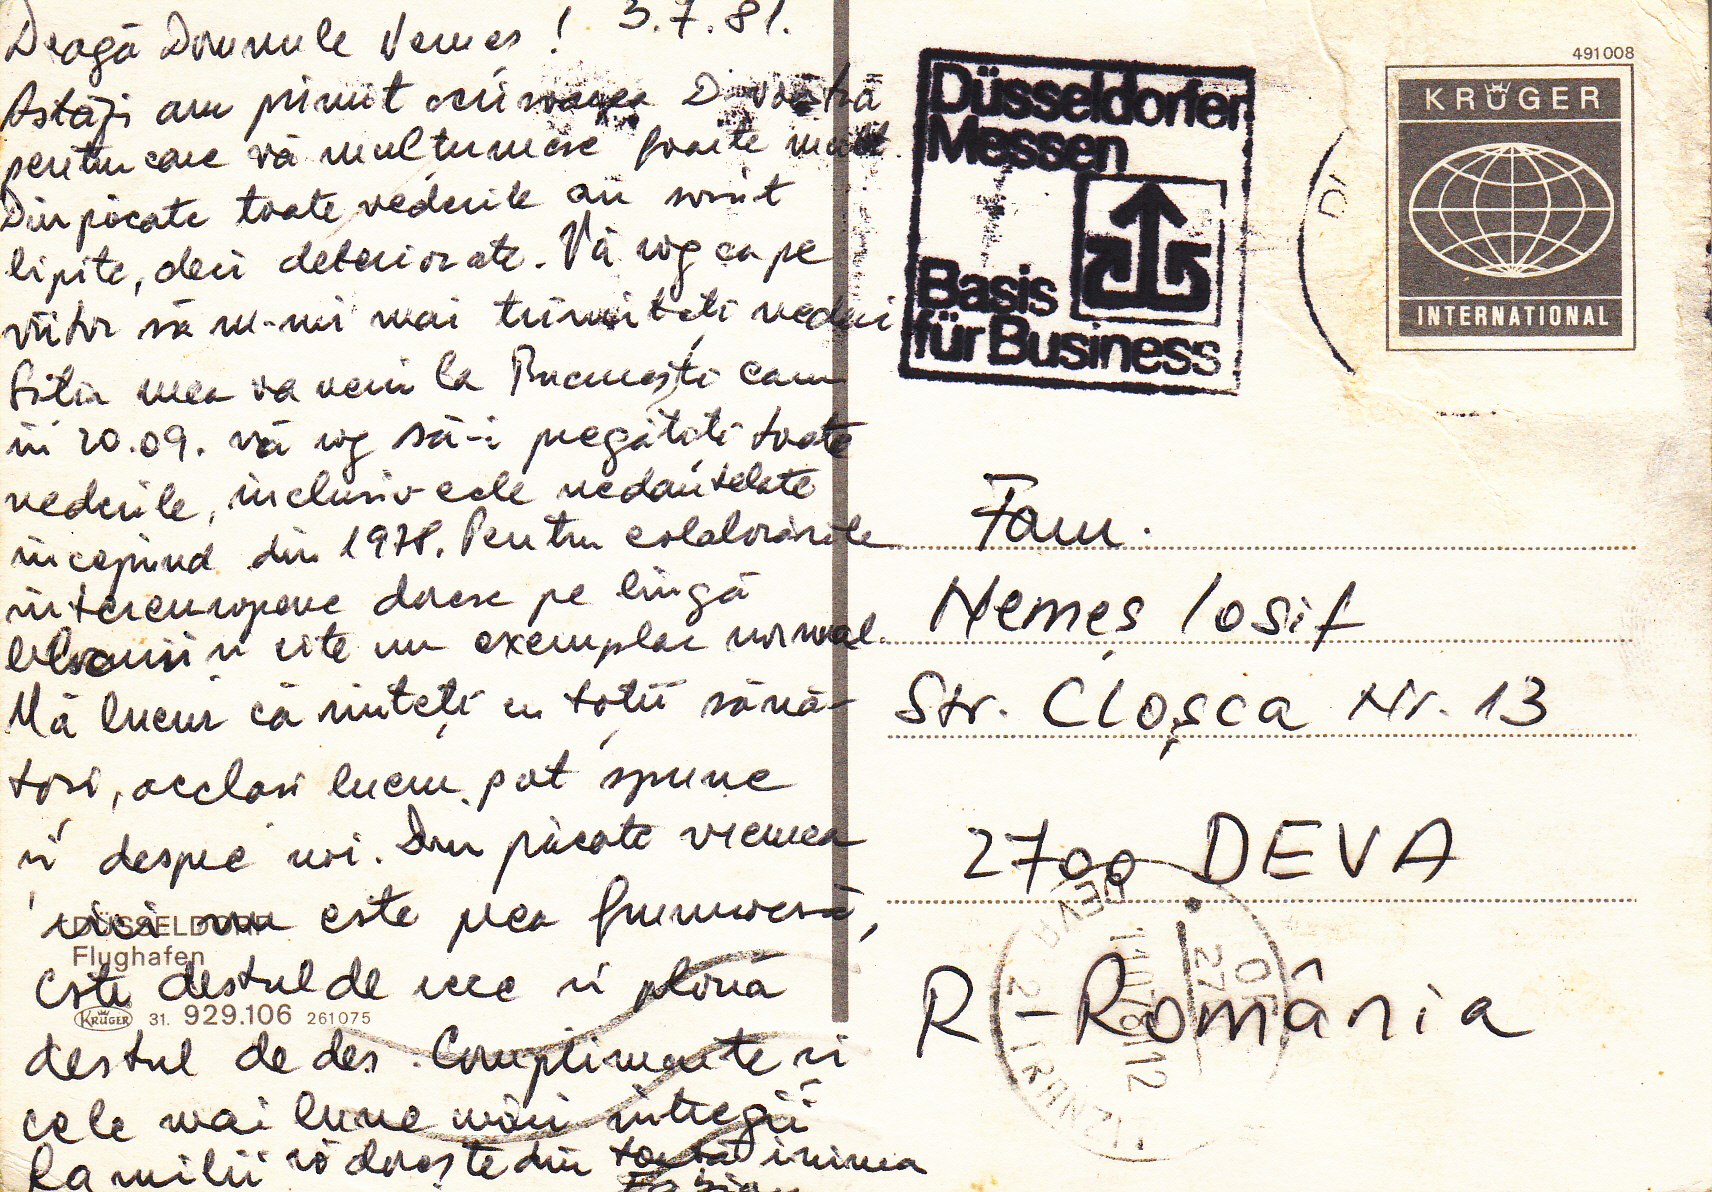 Dragă Domnule Nemeș ! 3.7.81.
Astăzi am primit scrisoarea D-voastră
pentru care vă mulțumesc foarte mult.
Din păcate toate vederile au sosit
lipite, deci deteriorate. Vă rog ca pe
viitor să nu-mi mai trimiteți vederi
Soția mea va veni la București cam
în 20.09. vă rog să-i pregătiți toate
vederile, inclusiv cele nedantelate
începînd din 1978. Pentru colaborările
intereuropene doresc pe lîngă
blocuri și cîte un exemplar normal.
Mă bucur că sînteți cu toții sănă-
toși, același lucru pot spune
și despre noi. Din păcate vremea
nici nu este prea frumoasă,
este destul de rece și plouă
destul de des. Complimente și
cele mai bune urări întregii
familii vă dorește din toată inima
Fabian
DÜSSELDORF
Flughafen
KRÜGER 31. 929.106 261075
Düsseldorfer
Messen
Basis
für Business
491008
KRÜGER
INTERNATIONAL
Fam.
Nemeș Iosif
Str. Cloșca Nr. 13
2700 DEVA
R România
DEVA